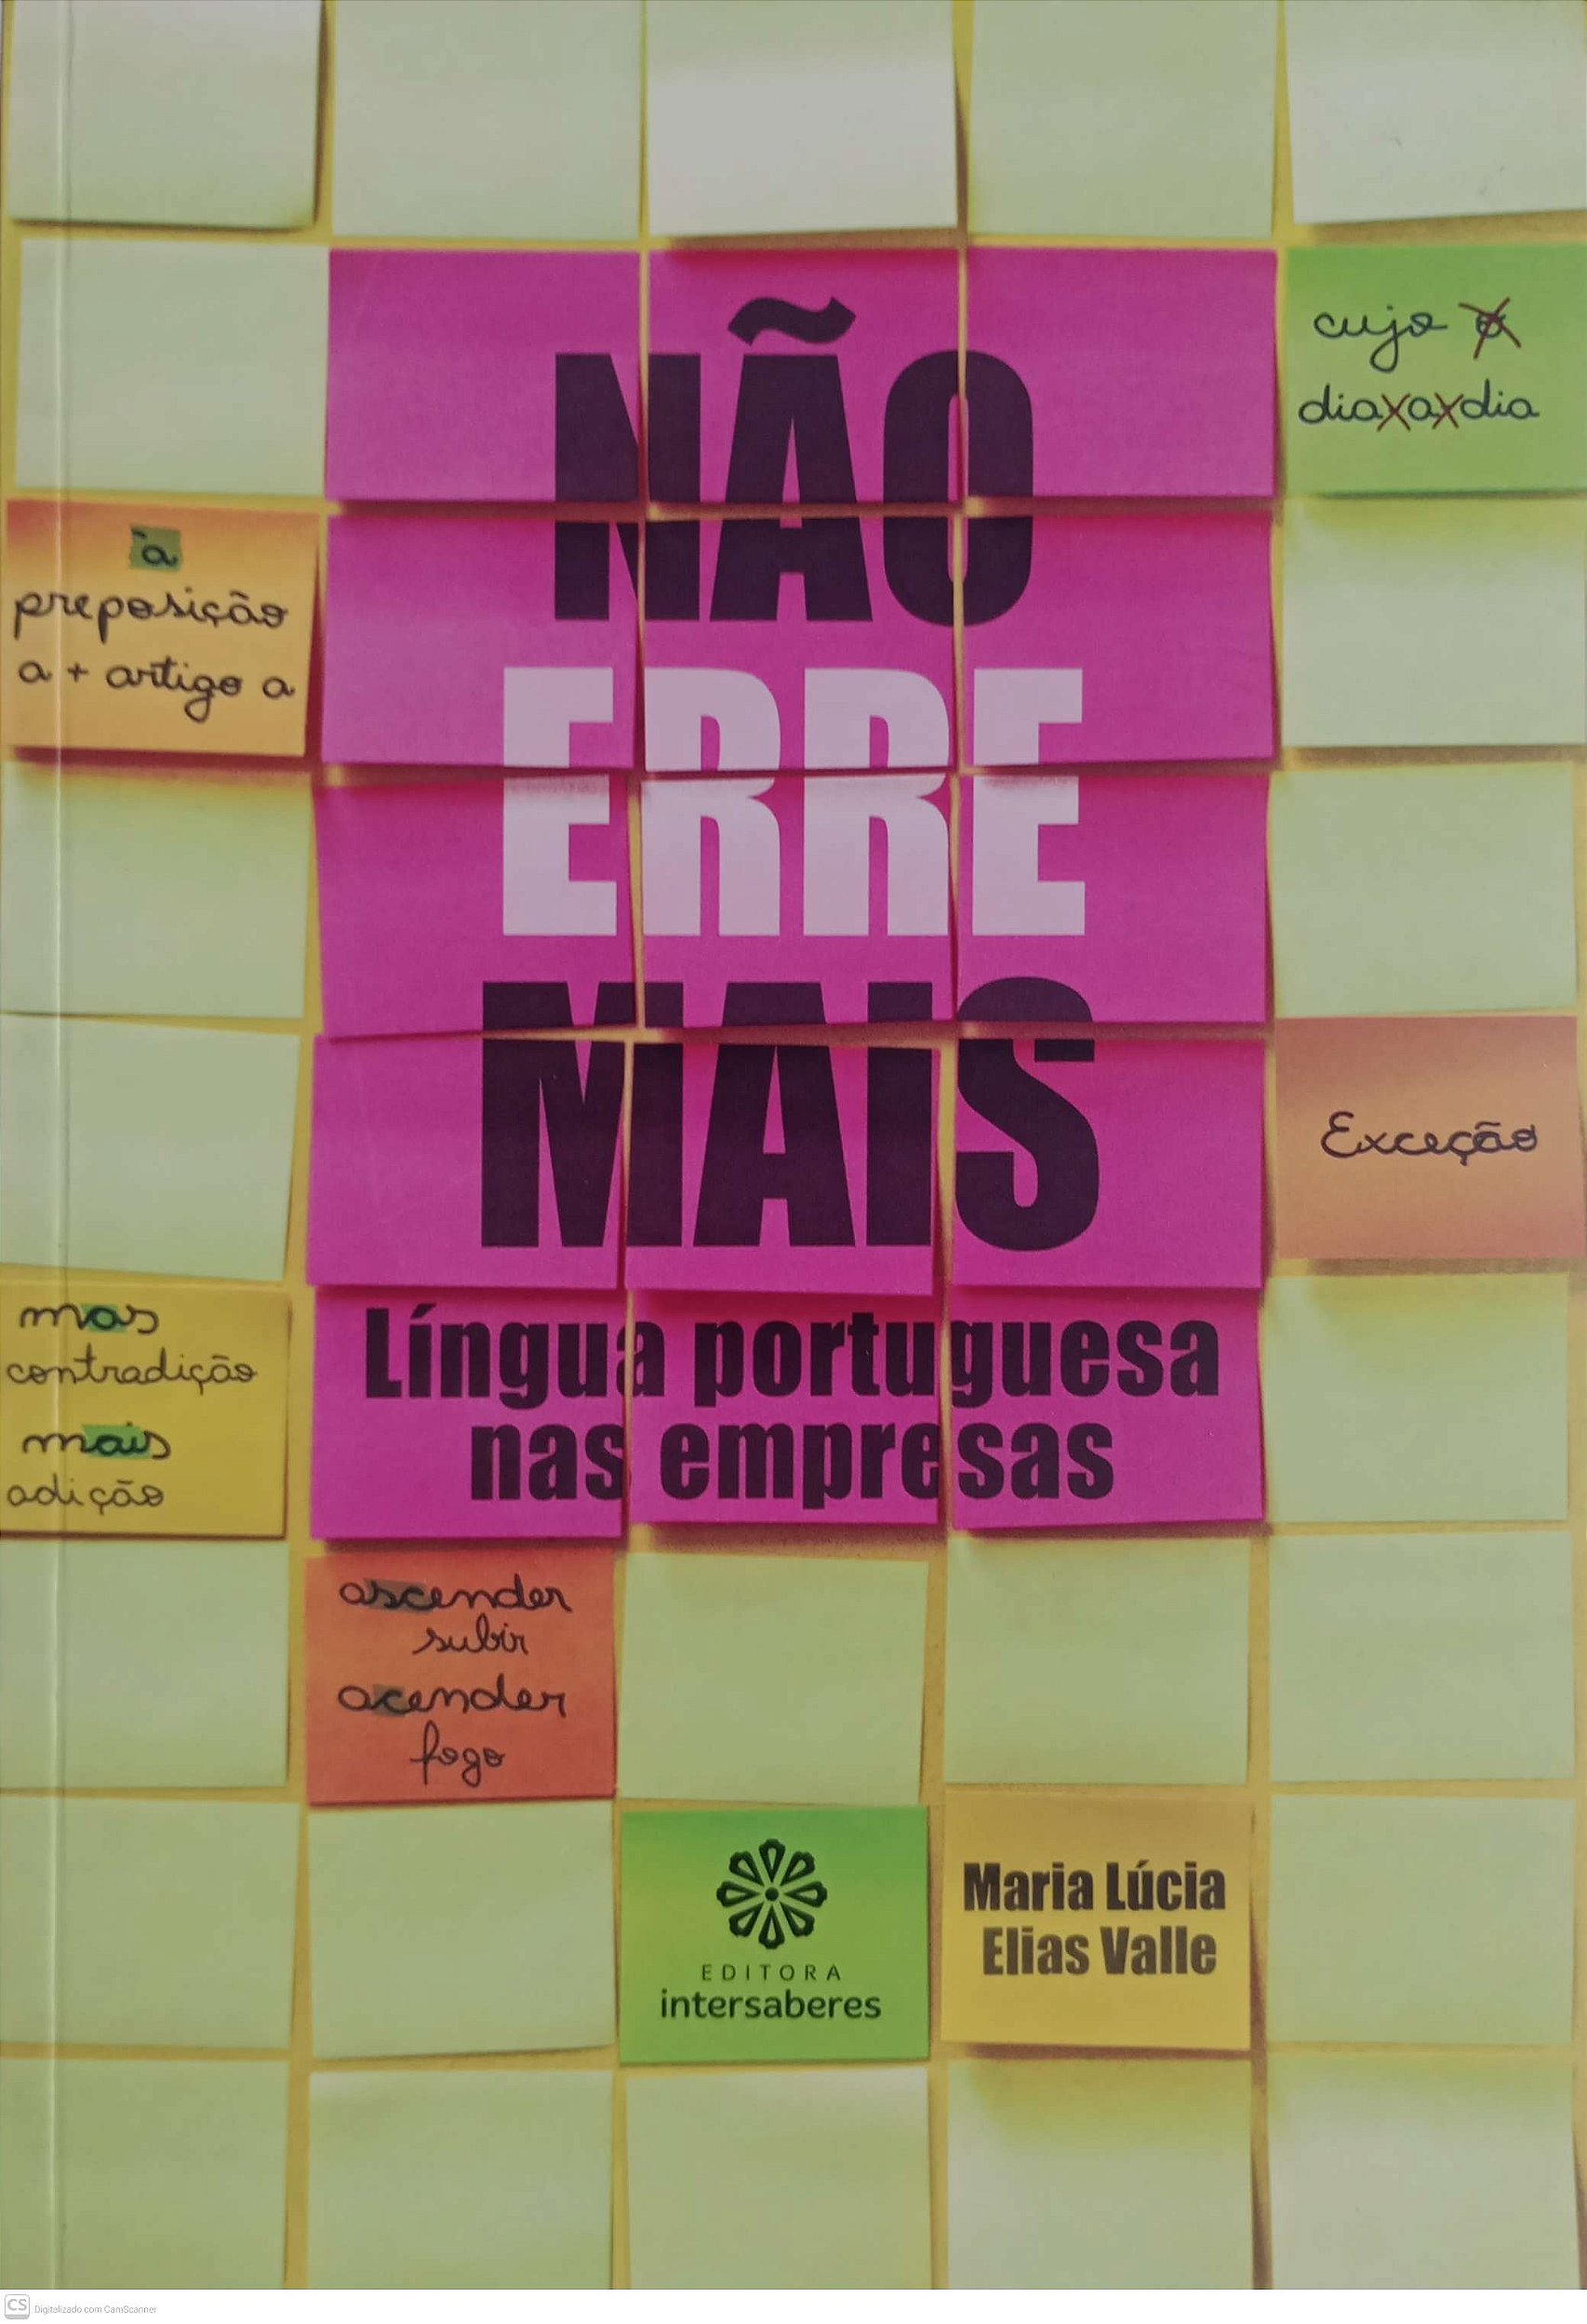 NÃO
ERRE
MAIS
Língua portuguesa
nas empresas
cujo o
dia a dia
à
preposição
a + artigo a
Exceção
mas
contradição
mais
adição
ascender
subir
acender
fogo
EDITORA
intersaberes
Maria Lúcia
Elias Valle
CS Digitalizado com CamScanner